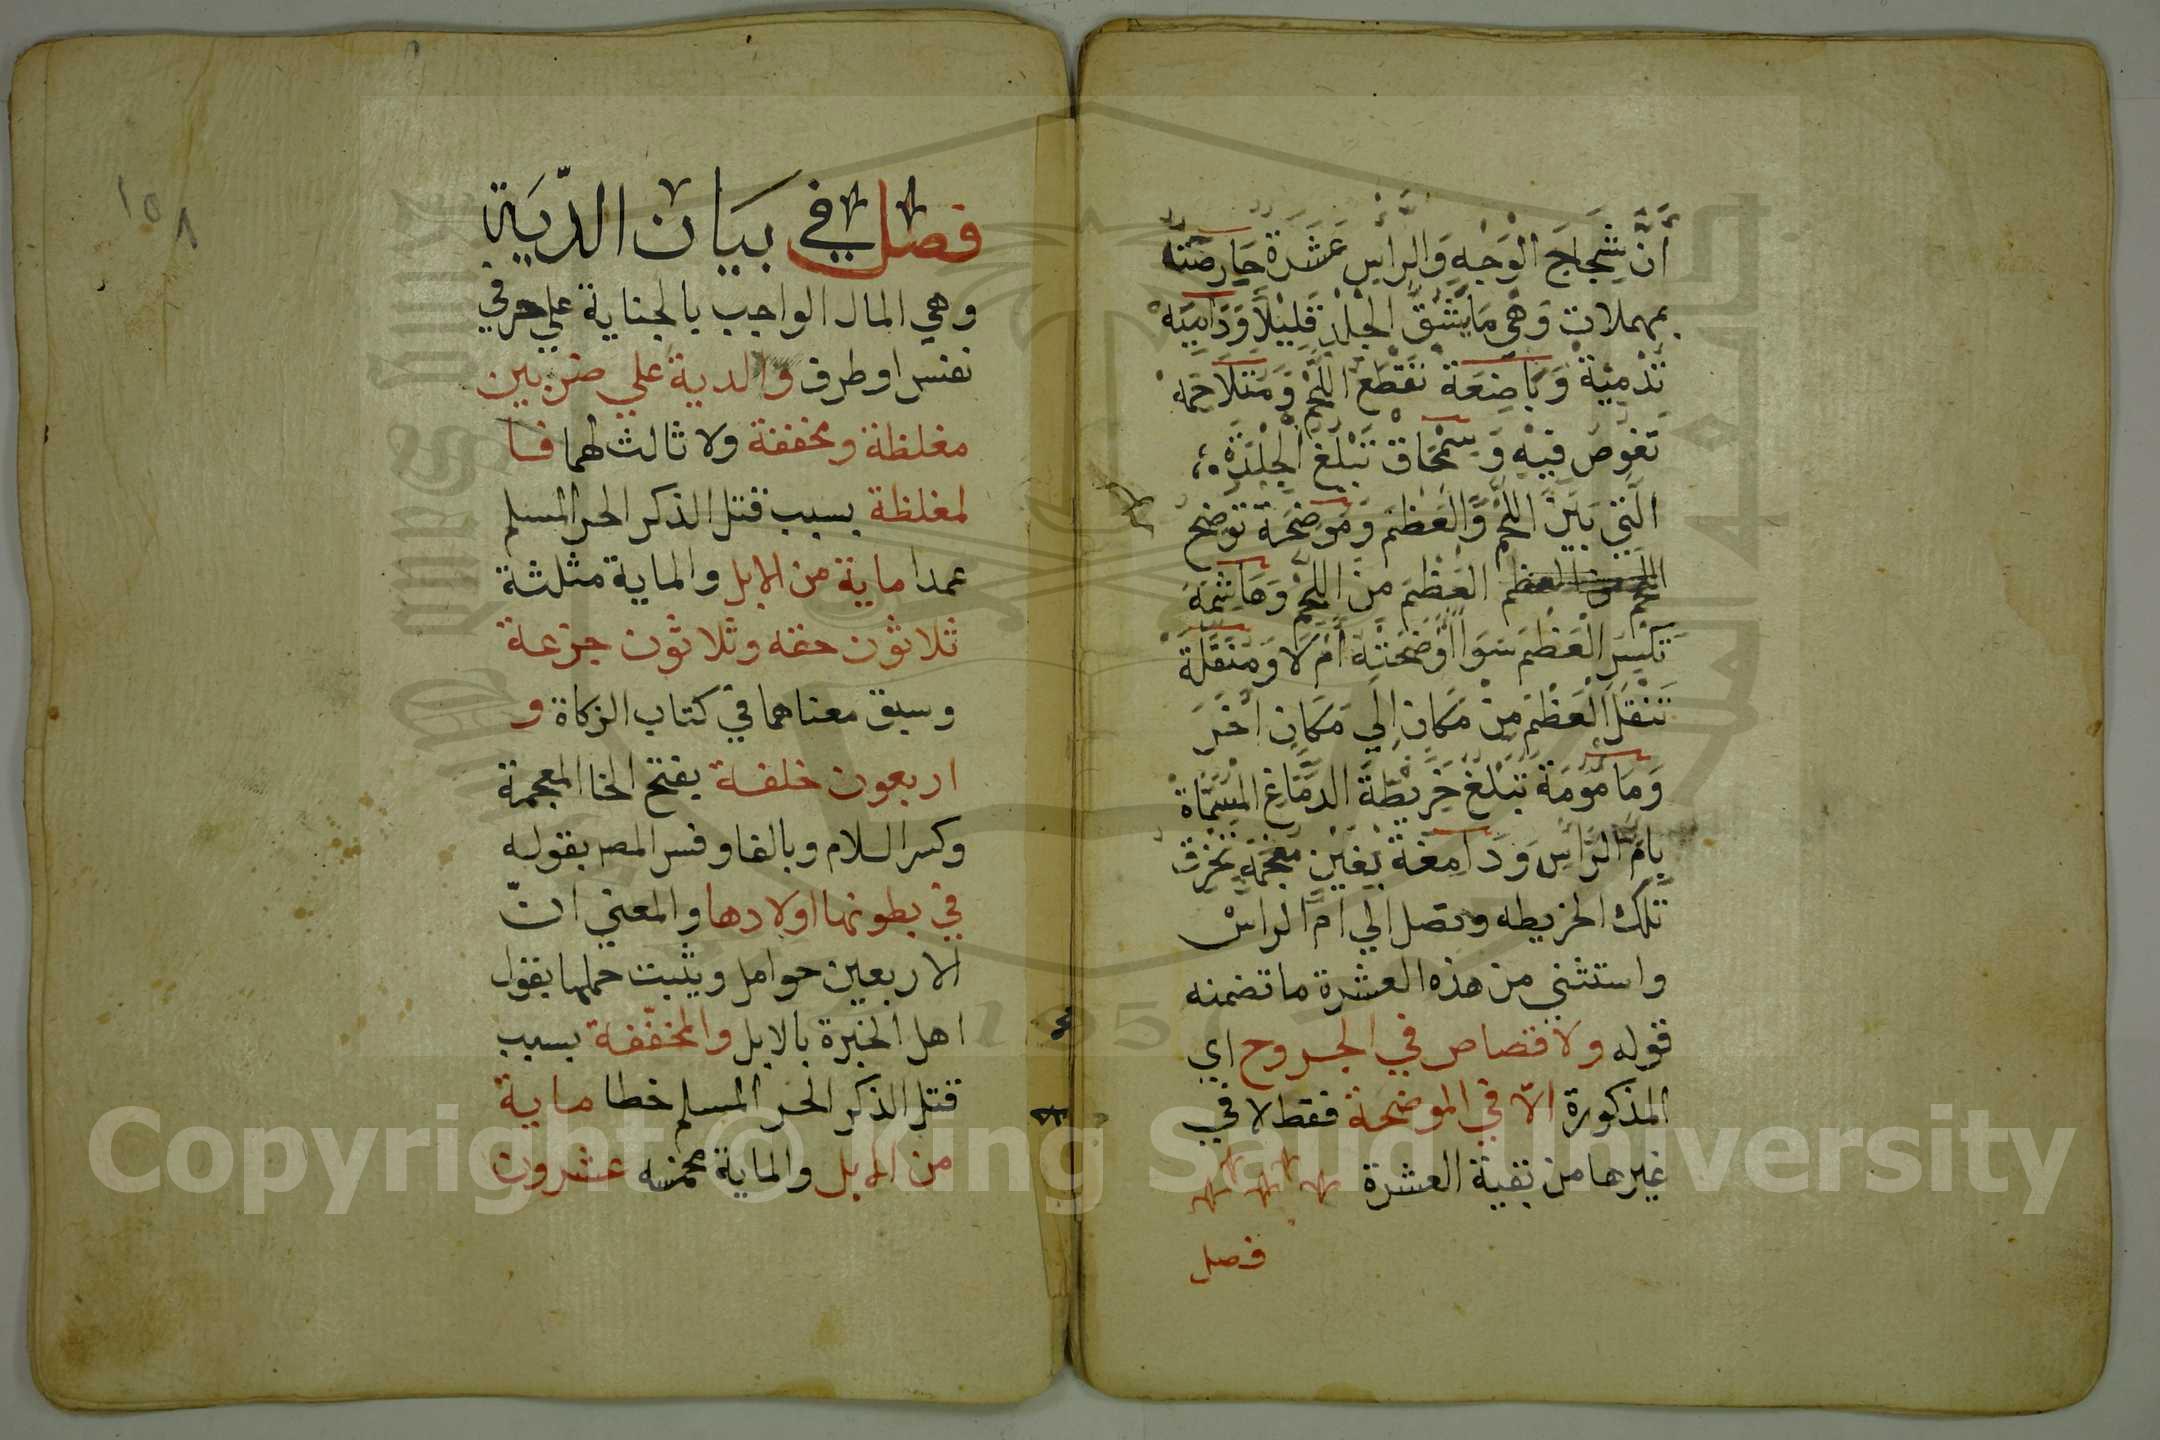 أَنَّ شِجَاجَ الْوَجْهِ وَالرَّأسِ عَشَرَةٌ حَارِصَتْه
بمهملات وَهْيَ مَا يَشُقُّ الْجِلْدَ قَلِيْلًا وَدَامِيَهْ
تُدْمِيْهْ وَبَاضِعَةٌ تَقْطَعُ اللَّحْمَ وَمُتَلَاحِمَه
تَغُوْصُ فِيْهِ وَسِمْحَاقٌ تَبْلُغُ الْجِلْدَةَ
الَّتِي بَيْنَ اللَّحْمِ وَالْعَظْمِ وَمُوضِحَةٌ تُوْضِحُ
الْعَظْمَ مِنَ اللَّحْمِ وَهَاشِمَه
تَكْسِرُ الْعَظْمَ سَوَا أَوْضَحَتْهُ أَمْ لَا وَمُنَقِّلَةٌ
تَنْقُلُ الْعَظْمَ مِنْ مَكَانٍ إِلَي مَكَانٍ اَخَرَ
وَمَأمُوْمَةٌ تَبْلُغُ خَرِيْطَةَ الدِّمَاغِ الْمُسَمَّاةَ
بِأُمِّ الرَّأسِ وَدَامِغَةٌ بِغَيْنٍ مُعْجَمَةٍ تَخْرِقُ
تلك الخريطه وتصل الي ام الراس
واستثني من هذه العشرة ما تضمنه
قوله ولا قصاص في الجروح اي
المذكورة الّا في الموضحة فقط لا في
غيرها من بقية العشرة
فصل
١٥٨
فصل في بيان الدّية
وهي المال الواجب بالجناية علي حر في
نفس او طرف والدية علي ضربين
مغلظة ومخففة ولا ثالث لهما فا
لمغلظة بسبب قتل الذكر الحر المسلم
عمدا ماية من الابل والماية مثلثة
ثلاثون حقه وثلاثون جزعة
وسبق معناهما في كتاب الزكاة و
اربعون خلفة بفتح الخا المعجمة
وكسر اللام وبالفا وفسر المصـ بقوله
في بطونها اولادها والمعني انّ
الاربعين حوامل ويثبت حملها بقول
اهل الخبرة بالابل والمخفّفة بسبب
قتل الذكر الحر المسلم خطا ماية
من الابل والماية مخمسه عشرون
Copyright © King Saud University
1957